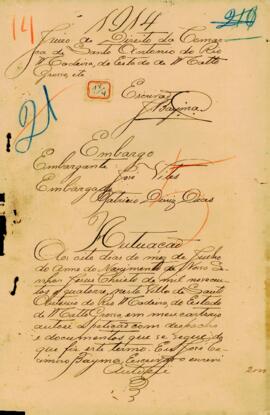 14
1914
210
Juizo de Direito da Comar
ca de Santo Antonio do Rio
Madeira, do Estado de Matto
Grosso, etc
21
Escrivão
Embargo
Embargante José
Embargado
Autuação
Aos sete dias do mez de Junho
do anno do Nascimento de Nosso Se-
nhor Jesus Christo de mil novecen-
tos e quatorze, nesta Villa de Santo
Antonio do Rio Madeira, do Estado
de Matto Grosso em meu cartorio
autoei a petição com despacho
e documentos que se seguem do
que fiz este termo. Eu, José Ca-
Escrivão escrevi